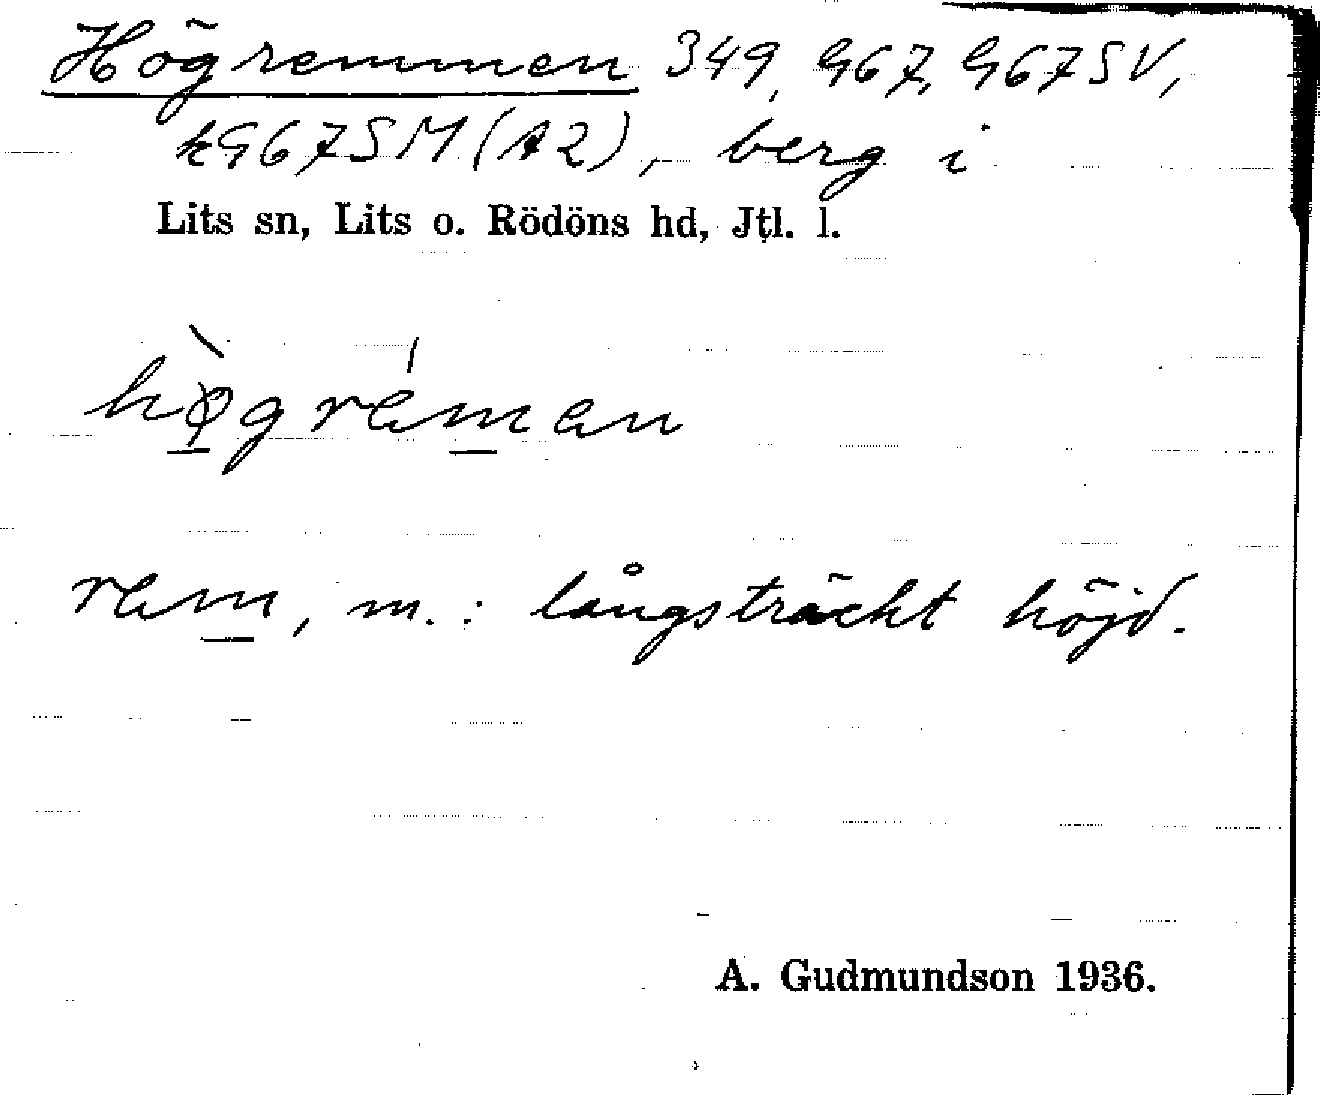 Högremmen 349, G67, G67SV,
kG67SM(A2), berg i
Lits sn, Lits o. Rödöns hd, Jtl. l.
hø̀gréman
rem, m.: långsträckt höjd.
A. Gudmundson 1936.